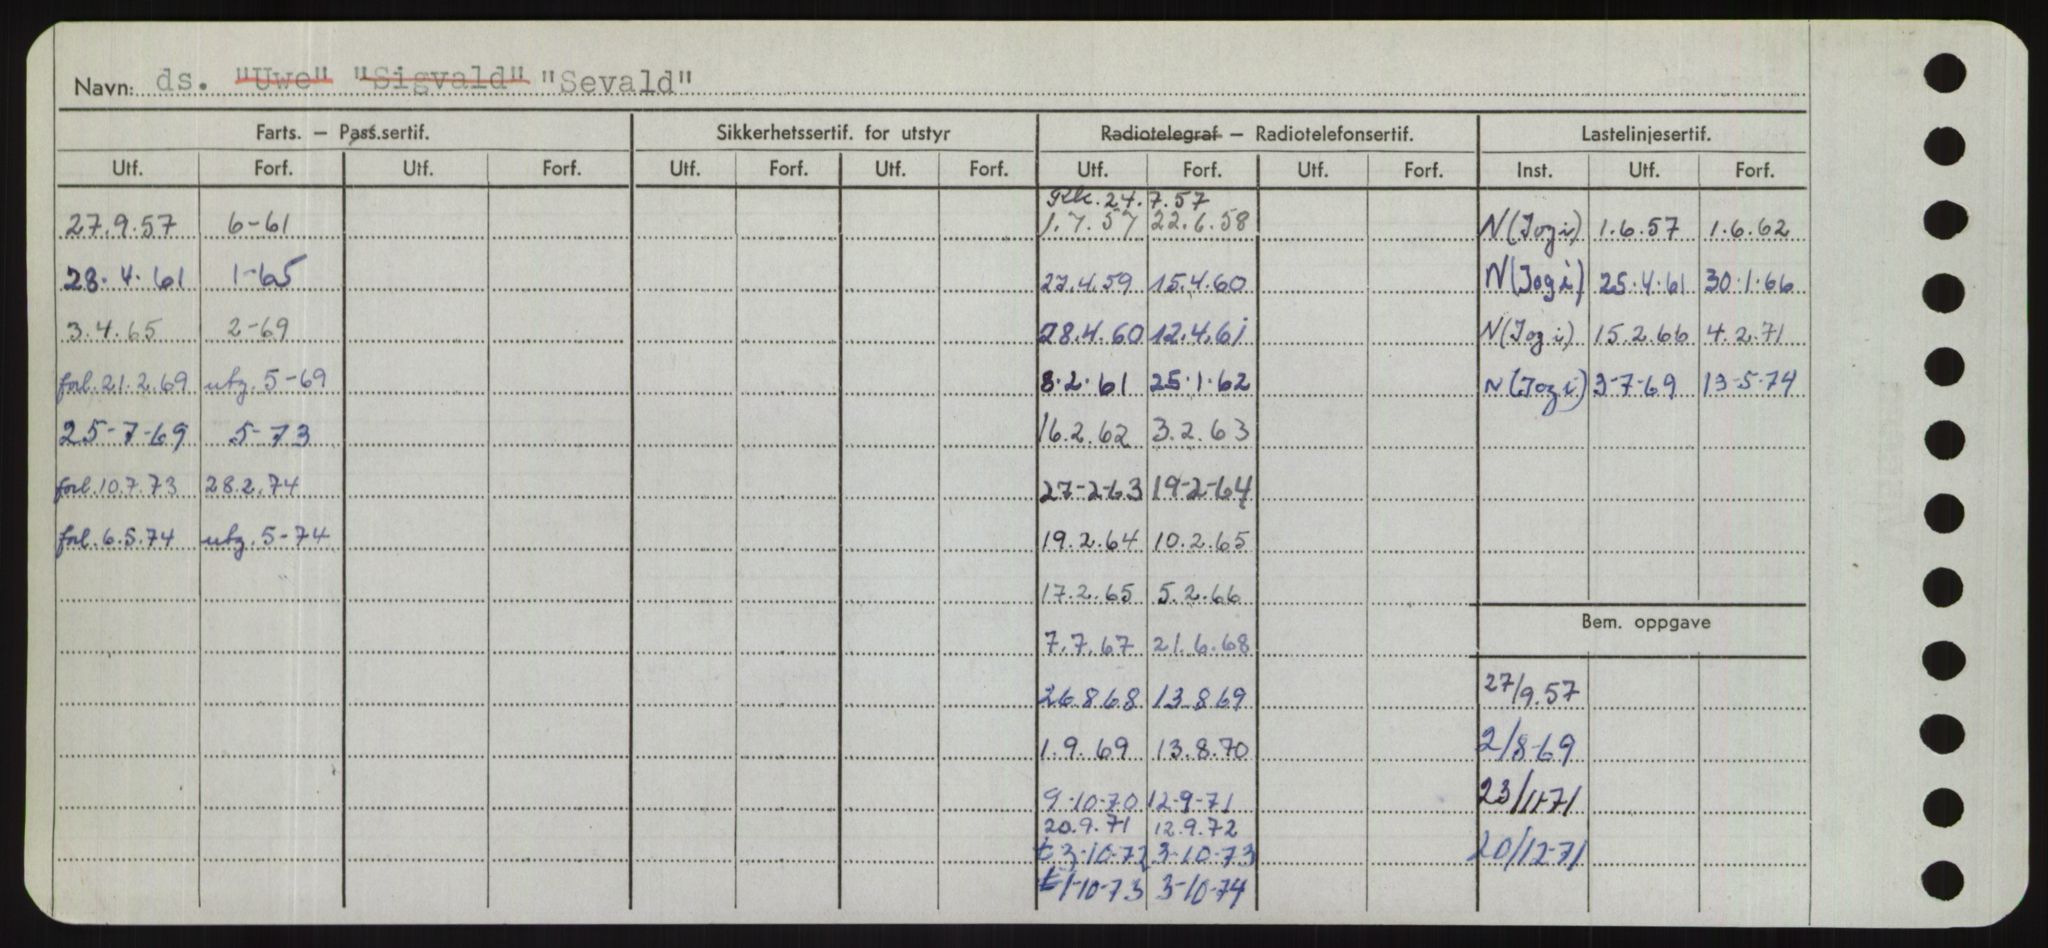 Navn: ds. "Uwe" "Sigvald" "Sevald"
Farts. – Pass.sertif. Sikkerhetssertif. for utstyr Radiotelegraf – Radiotelefonsertif. Lastelinjesertif.
Utf. Forf. Utf. Forf. Utf. Forf. Utf. Forf. Utf. Forf. Utf. Forf. Inst. Utf. Forf.
24.7.57
27.9.57 6-61 1.7.57 22.6.58 N(Jogi) 1.6.57 1.6.62
28.4.61 1-65 27.4.59 15.4.60 N(Jogi) 25.4.61 30.1.66
3.4.65 2-69 28.4.60 12.4.61 N(Jogi) 15.2.66 4.2.71
forl.21.2.69 utg. 5-69 8.2.61 25.1.62 N(Jogi) 3-7-69 13-5-74
25-7-69 5-73 16.2.62 3.2.63
forl.10.7.73 28.2.74 27-2-63 19-2-64
forl.6.5.74 utg. 5-74 19.2.64 10.2.65
17.2.65 5.2.66
Bem. oppgave
7.7.67 21.6.68
26.8.68 13.8.69 27/9.57
1.9.69 13.8.70 2/8-69
9-10-70 12-9-71 23/11-71
20.9.71 12.9.72
t 3-10-72 3-10-73 20/12-71
t 1-10-73 3-10-74